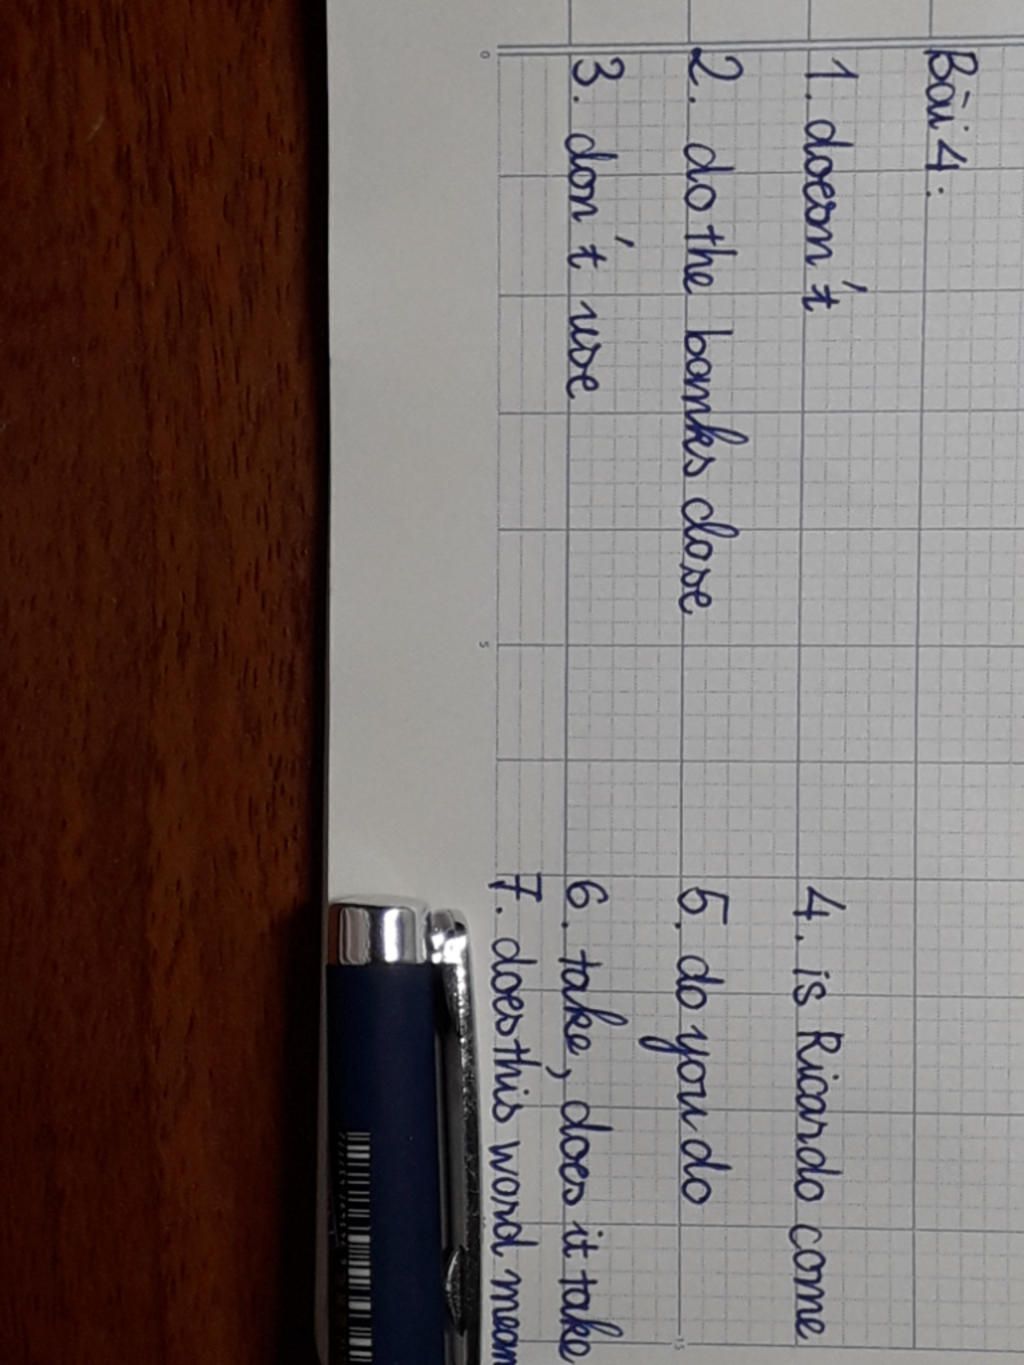 Bài 4:
1. doesn't
2. do the banks close
3. don't use
4. is Ricardo come
5. do you do
6. take, does it take
7. does this word mean
0
5
15